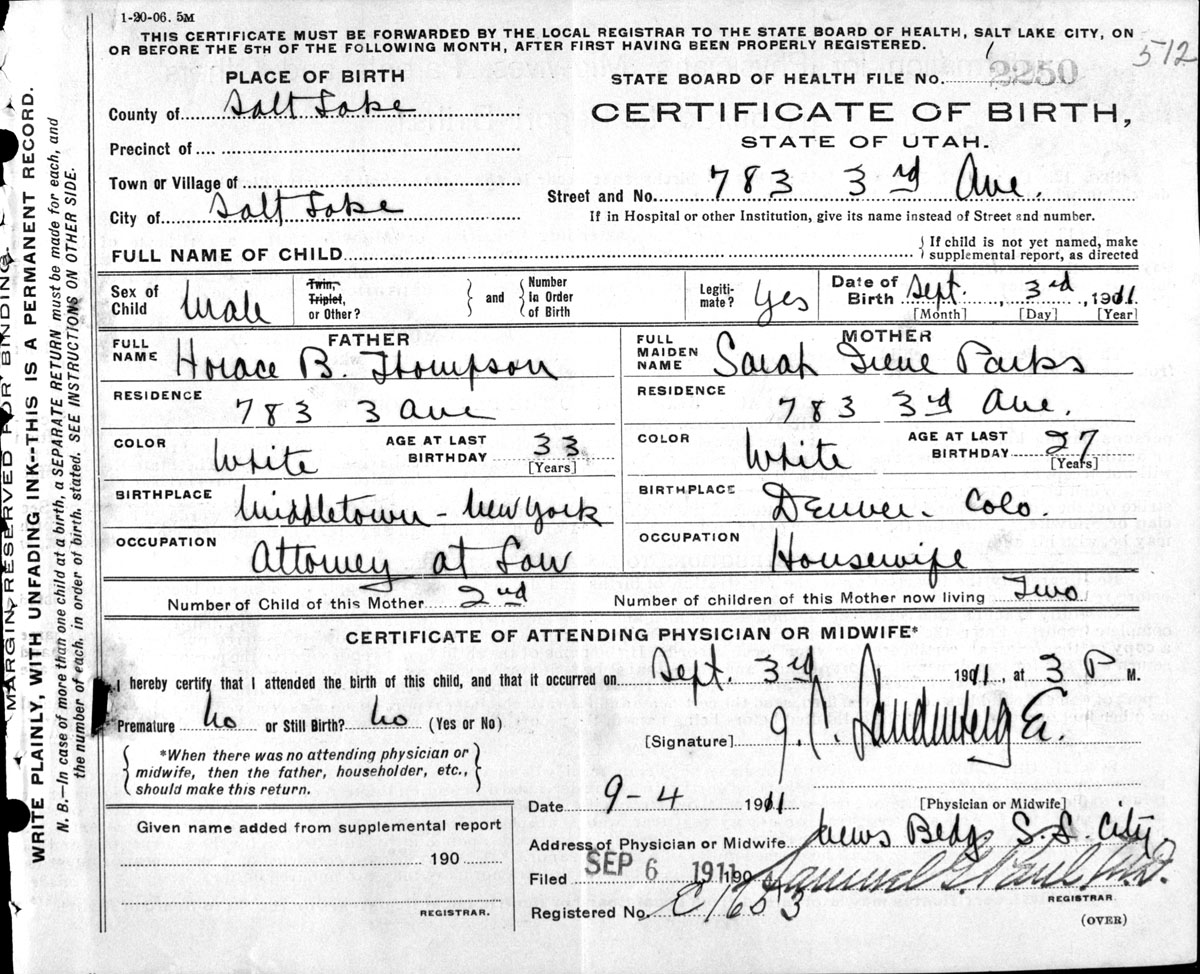 1-20-06. 5M
THIS CERTIFICATE MUST BE FORWARDED BY THE LOCAL REGISTRAR TO THE STATE BOARD OF HEALTH, SALT LAKE CITY, ON
OR BEFORE THE 5TH OF THE FOLLOWING MONTH, AFTER FIRST HAVING BEEN PROPERLY REGISTERED.
512
PLACE OF BIRTH
STATE BOARD OF HEALTH FILE No. 2250
County of Salt Lake
CERTIFICATE OF BIRTH,
Precinct of
STATE OF UTAH.
Town or Village of
Street and No. 783 3rd Ave.
City of Salt Lake
If in Hospital or other Institution, give its name instead of Street and number.
FULL NAME OF CHILD
If child is not yet named, make
supplemental report, as directed
Sex of Child Male
Twin, Triplet, or Other?
and
Number in Order of Birth
Legiti-mate? Yes
Date of Birth Sept. 3rd, 1911
[Month] [Day] [Year]
FATHER
FULL NAME Horace B. Thompson
MOTHER
FULL MAIDEN NAME Sarah Irene Parks
RESIDENCE 783 3 Ave
RESIDENCE 783 3rd Ave.
COLOR White AGE AT LAST BIRTHDAY 33 [Years]
COLOR White AGE AT LAST BIRTHDAY 27 [Years]
BIRTHPLACE Middletown - New York
BIRTHPLACE Denver. Colo.
OCCUPATION Attorney at Law
OCCUPATION Housewife
Number of Child of this Mother 2nd
Number of children of this Mother now living Two
CERTIFICATE OF ATTENDING PHYSICIAN OR MIDWIFE*
I hereby certify that I attended the birth of this child, and that it occurred on Sept. 3rd 1911, at 3 P M.
Premature No or Still Birth? No (Yes or No)
[Signature] J. C.
*When there was no attending physician or
midwife, then the father, householder, etc.,
should make this return.
Date 9-4 1911
[Physician or Midwife]
Given name added from supplemental report
190
REGISTRAR.
Address of Physician or Midwife News Bldg S. L. City
Filed SEP 6 1911 190 Samuel G. Paul, M.D.
REGISTRAR
Registered No. C 1653
(OVER)
MARGIN RESERVED FOR BINDING.
WRITE PLAINLY, WITH UNFADING INK--THIS IS A PERMANENT RECORD.
N. B.—In case of more than one child at a birth, a SEPARATE RETURN must be made for each, and
the number of each, in order of birth, stated. SEE INSTRUCTIONS ON OTHER SIDE.